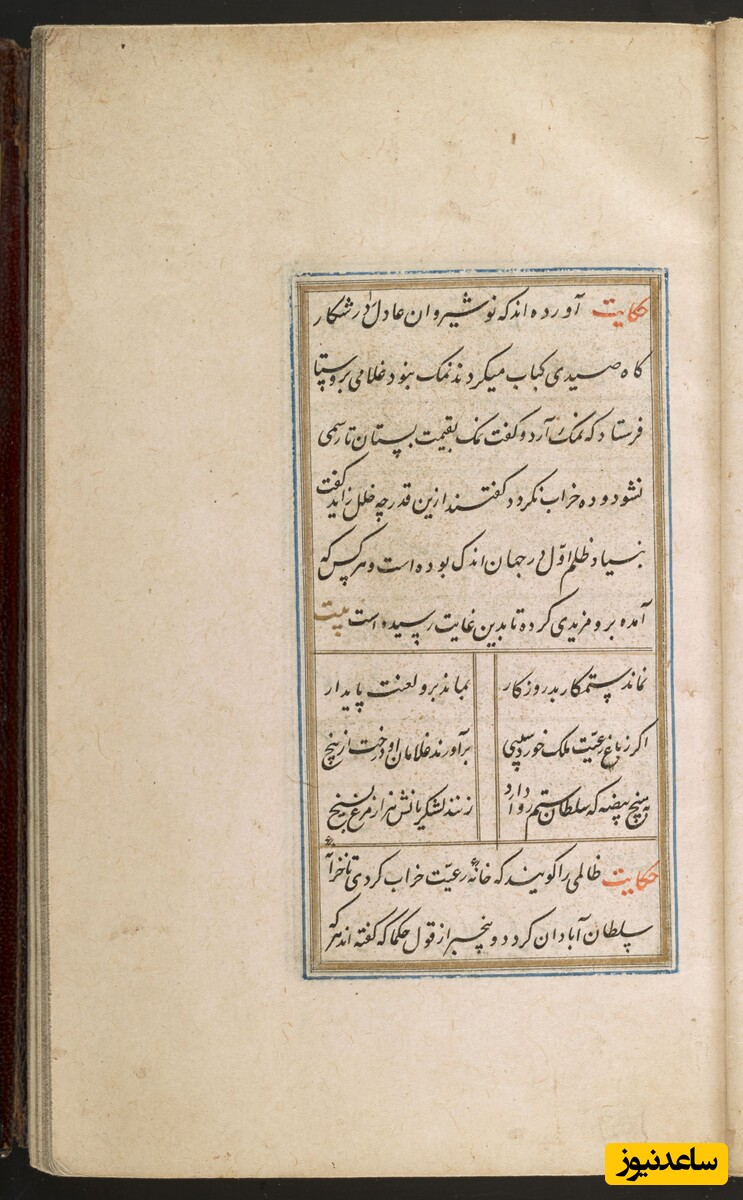 حکایت آورده اند که نوشیروان عادل را در شکار
کاه صیدی کباب میکردند نمک نبود غلامی بروستا
فرستاد که نمک آرد و کفت نمک بقیمت بستان تا رسمی
نشود و ده خراب نکردد کفتند ازین قدر چه خلل زاید کفت
بنیاد ظلم اوّل در جهان اندک بوده است و هر کس که
آمده برو مزیدی کرده تا بدین غایت رسیده است بیت
نماند ستمکار بد روزکار بماند برو لعنت پایدار
اکر ز باغ رعیّت ملک خورد سیبی برآورند غلامان او درخت از بیخ
به پنج بیضه که سلطان ستم روا دارد زنند لشکریانش هزار مرغ بسیخ
حکایت ظالمی را کویند که خانهٔ رعیّت خراب کردی تا خزانهٔ
سلطان آبادان کردد و بیخبر از قول حکما که کفته اند هر که
ساعدنیوز